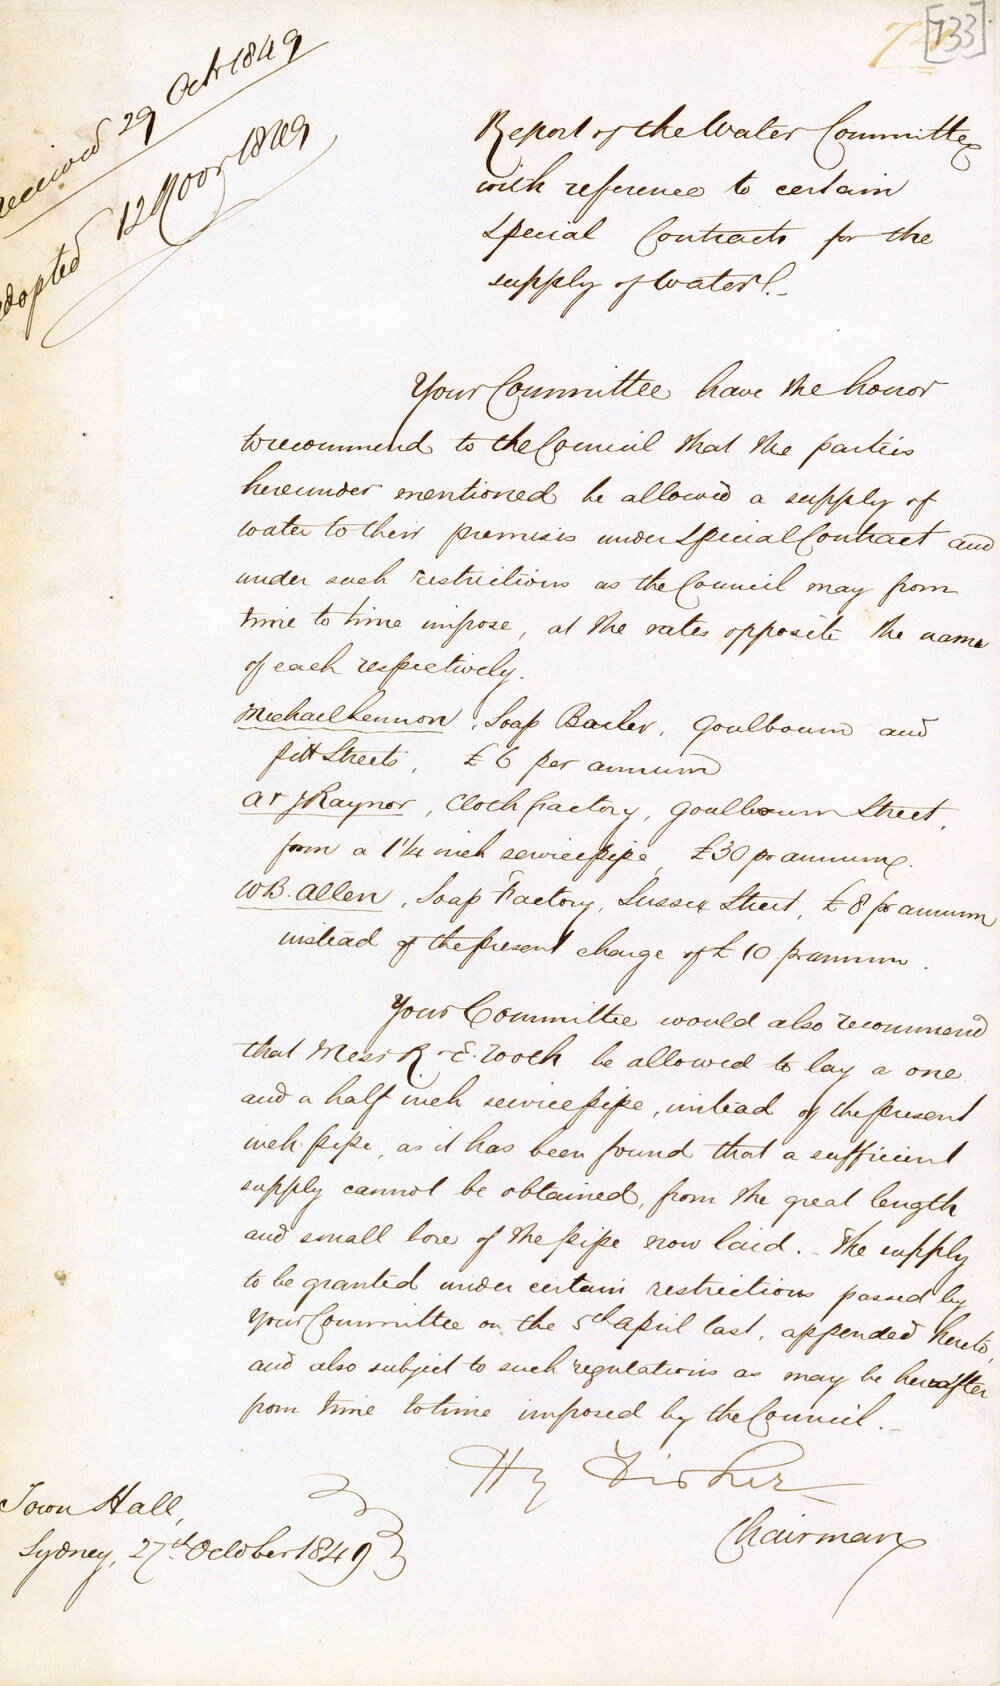 [733]
Received 29 Octr 1849
Adopted 12 Novr 1849
Report of the Water Committee
with reference to certain
Special Contracts for the
supply of Water.
Your Committee have the honor
to recommend to the Council that the parties
hereunder mentioned be allowed a supply of
water to their premises under Special Contract and
under such restrictions as the Council may from
time to time impose, at the rates opposite the name
of each respectively.
Michael Lennon, Soap Boiler, Goulbourn and
Pitt Streets, £6 per annum
A & J Raynor, Cloth factory, Goulbourn Street,
from a 1¼ inch service pipe, £30 pr annum.
W B. Allen, Soap Factory, Sussex Street, £8 pr annum
instead of the present charge of £10 pr annum.
Your Committee would also recommend
that Messrs R. & E. Tooth be allowed to lay a one
and a half inch service pipe, instead of the present
inch pipe, as it has been found that a sufficient
supply cannot be obtained, from the great length
and small bore of the pipe now laid. - The supply
to be granted under certain restrictions passed by
Your Committee on the 5th April last, appended hereto,
and also subject to such regulations as may be hereafter
from time to time imposed by the Council. -
Hy Fisher
Chairman
Town Hall,
Sydney, 27th October 1849